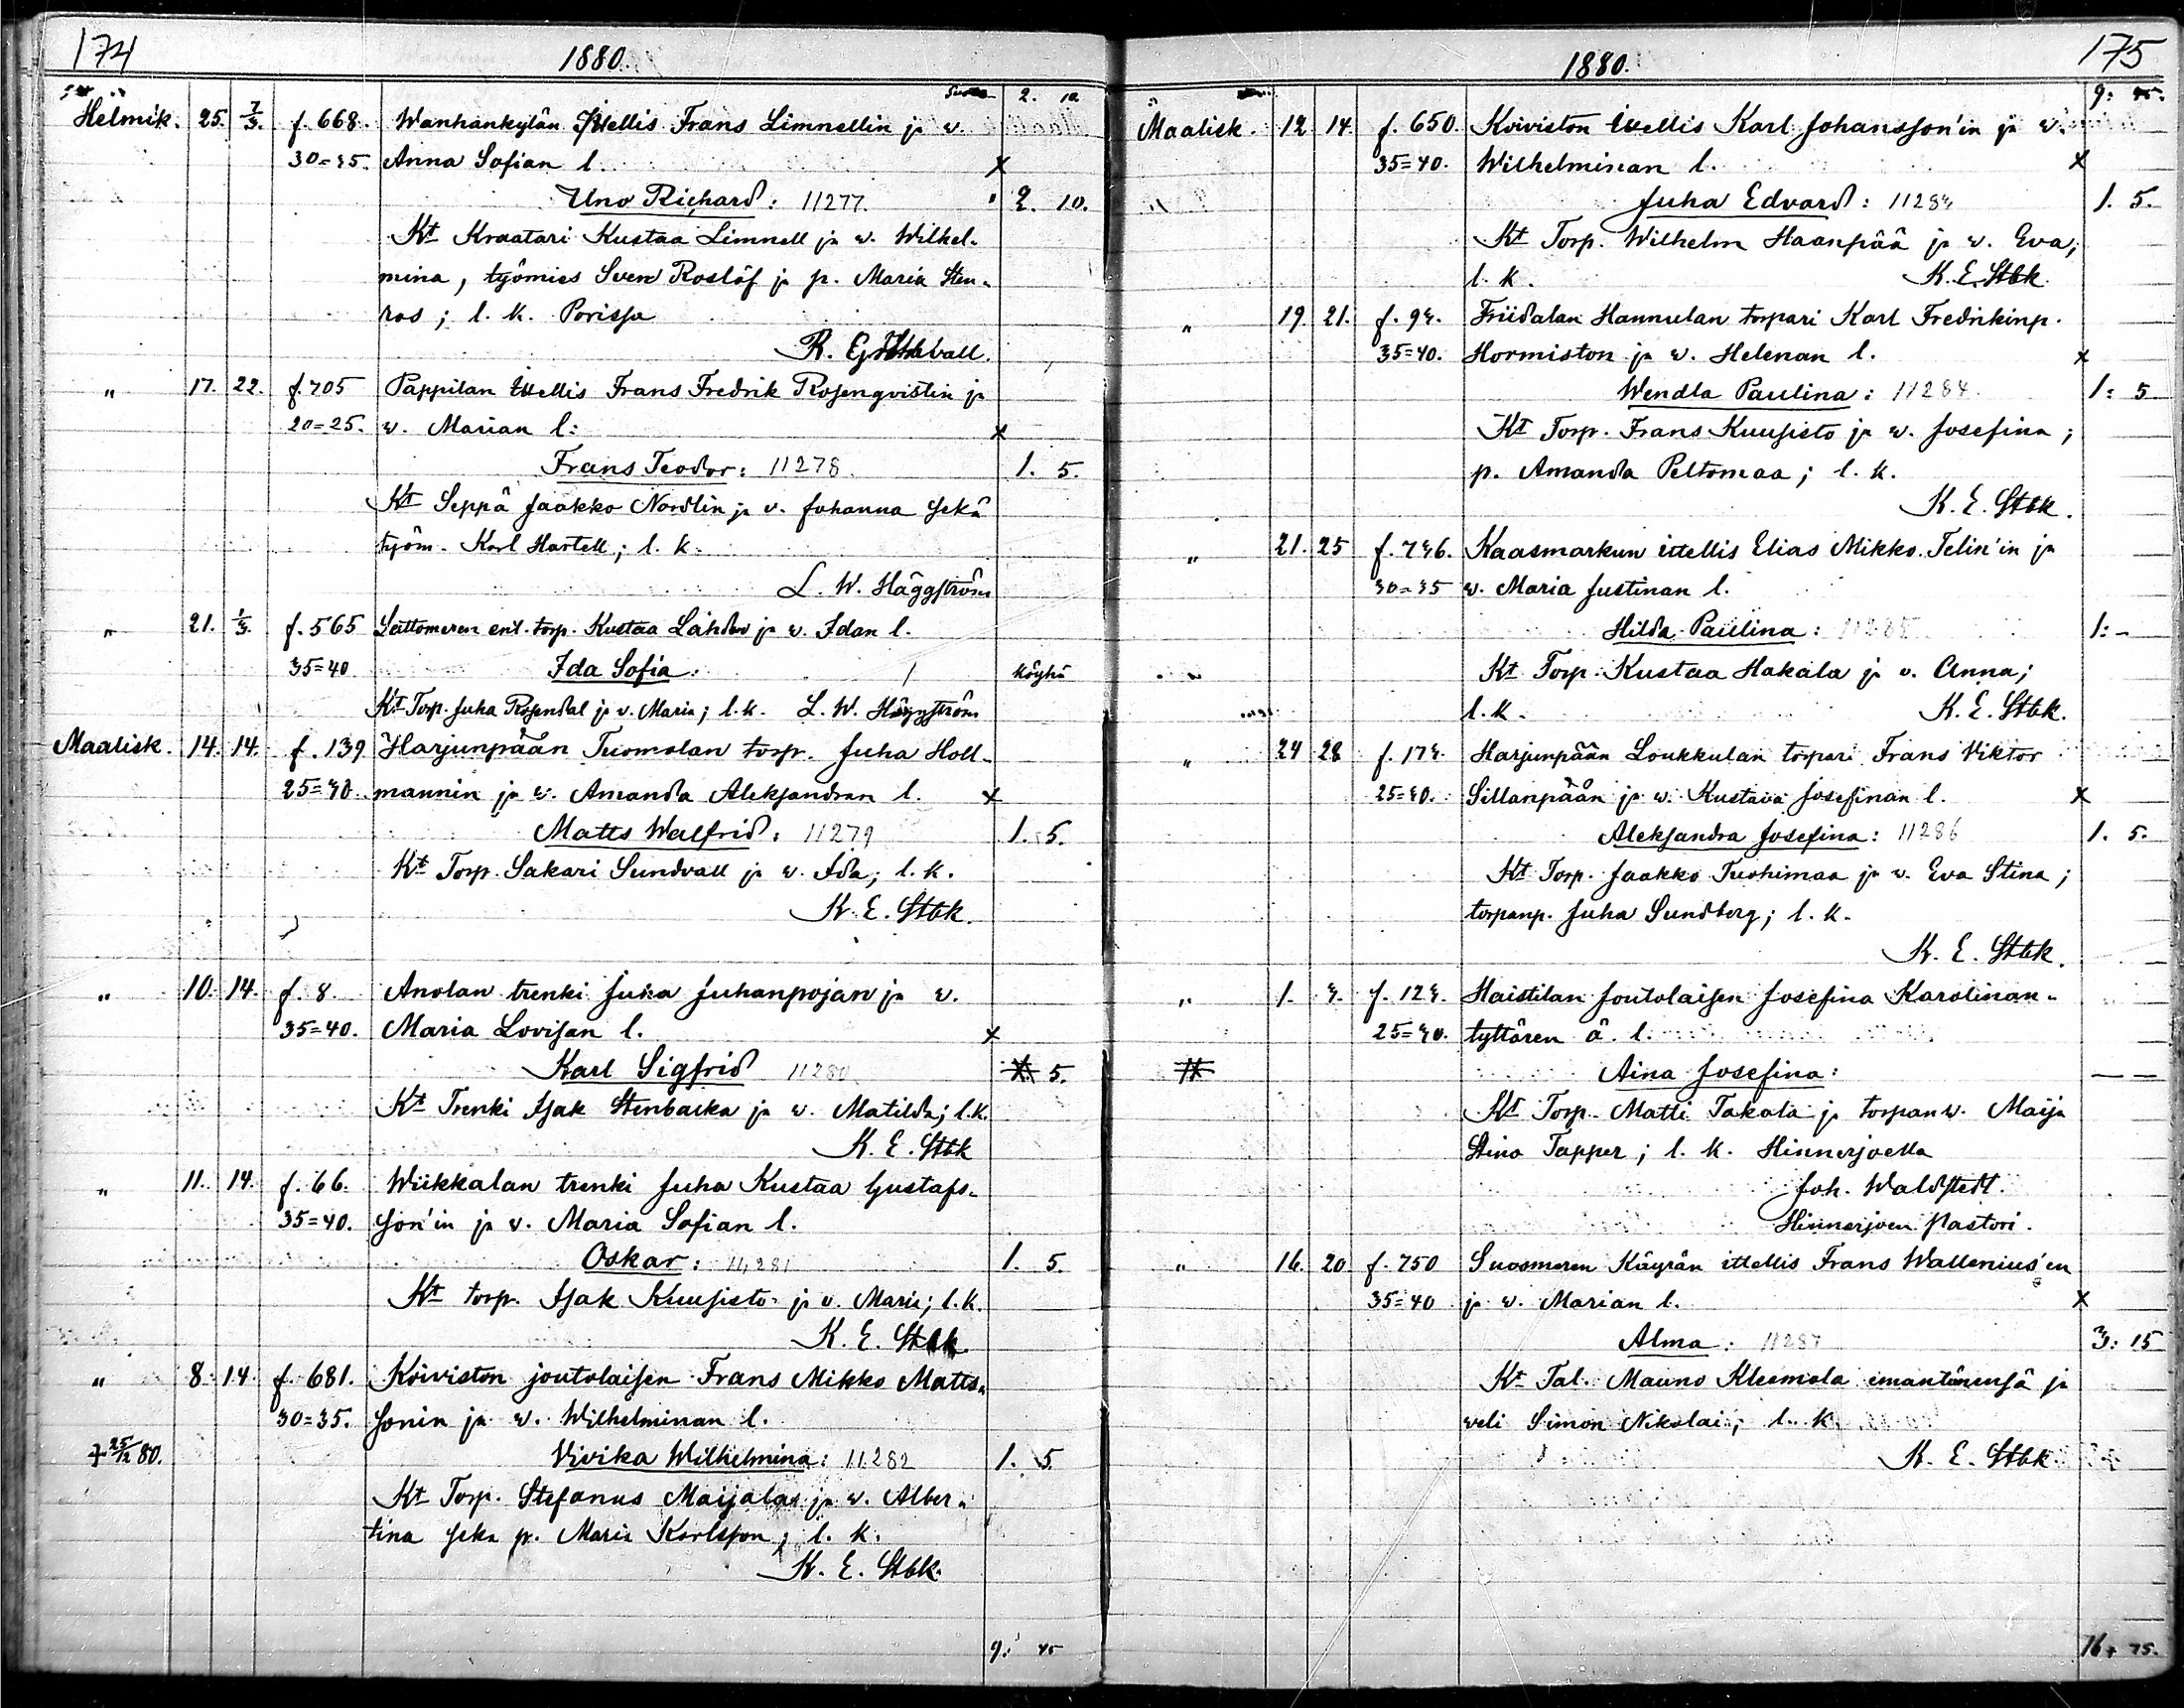 174
1880.
2. 10
Helmik. 25. 7/3. f. 668. Wanhankylän Ittellis Frans Limnellin ja w.
30=35. Anna Sofian l. x
Uno Richard: 11277. 2. 10.
Kt Kraatari Kustaa Limnell ja w. Wilhel-
mina, työmies Sven Roslöf ja p. Maria Sten-
ros; l. k. Porissa
" 17. 22. f. 705 Pappilan Ittellis Frans Fredrik Rosenqvistin ja
20=25. w. Marian l: x
Frans Teodor: 11278. 1. 5.
Kt Seppä Jaakko Nordlin ja v. Johanna sekä
työm. Karl Hartell; l. k.
L. W. Häggström
" 21. 1/3. f. 565 Lattomeren ent. torp. Kustaa Lähden ja w. Idan l.
35=40 Ida Sofia: / köyhä
Kt Torp. Juha Rosendal ja v. Maria; l. k. L. W. Häggström
Maalisk. 14. 14. f. 139 Harjunpään Tuomolan torp. Juha Holl-
25=30. mannin ja w. Amanda Aleksandran l. x
Matts Walfrid: 11279 1. 5.
Kt Torp. Sakari Sundvall ja w. Ida; l. k.
K. E. Stbk.
" 10. 14. f. 8. Anolan trenki Juha Juhanpojan ja w.
35=40. Maria Lovisan l. x
Karl Sigfrid 11280 5.
Kt Trenki Isak Stenbacka ja w. Matilda; l.k.
K. E. Stbk
" 11. 14. f. 66. Wiikkalan trenki Juha Kustaa Gustafs-
35=40. son'in ja v. Maria Sofian l.
Oskar: 11281 1. 5.
Kt torp. Isak Kuusisto ja v. Maria; l. k.
K. E. Stbk
" 8. 14. f. 681. Koiviston joutolaisen Frans Mikko Matts-
30=35. sonin ja w. Wilhelminan l.
+ 25/12 80. Vivika Wilhelmina: 11282 1. 5.
Kt Torp. Stefanus Maijala ja w. Alber-
tina sekä p. Maria Karlsson; l. k.
K. E. Stbk.
9: 45
175
1880.
9: 45.
Maalisk. 12 14 f. 650. Koiviston ittellis Karl Johansson'in ja w.
35=40. Wilhelminan l. x
Juha Edvard: 11283 1. 5.
Kt Torp. Wilhelm Haanpää ja w. Eva;
l. k. K. E. Stbk.
" 19. 21. f. 93. Friidalan Hannulan torpari Karl Fredrikinp.
35=40. Hormiston ja w. Helenan l. x
Wendla Paulina: 11284. 1: 5.
Kt Torp. Frans Kuusisto ja w. Josefina;
p. Amanda Peltomaa; l. k.
K. E. Stbk.
" 21. 25 f. 736. Kaasmarkun ittellis Elias Mikko Telin'in ja
30=35 w. Maria Justinan l.
Hilda Paulina: 11285 1: –
Kt Torp. Kustaa Hakala ja v. Anna;
l. k. K. E. Stbk.
" 24 28 f. 173. Harjunpään Loukkulan torpari Frans Viktor
25=30. Sillanpään ja w. Kustava Josefinan l. x
Aleksandra Josefina: 11286 1. 5.
Kt Torp. Jaakko Tuohimaa ja w. Eva Stina;
torpanp. Juha Sundberg; l. k.
K. E. Stbk.
" 1. 3. f. 123. Haistilan joutolaisen Josefina Karolinan-
25=30. tyttären ä. l.
Aina Josefina: — —
Kt Torp. Matti Takala ja torpan w. Maija
Stina Tapper; l. k. Hinnerjoella
Joh. Waldstedt.
Hinnerjoen Pastori.
" 16. 20 f. 750 Suosmeren Käyrän ittellis Frans Wallenius'en
35=40 ja w. Marian l. x
Alma: 11287 3: 15
Kt Tal. Mauno Kleemola emäntänensä ja
weli Simon Nikolai; l. k.
K. E. Stbk
16 75.